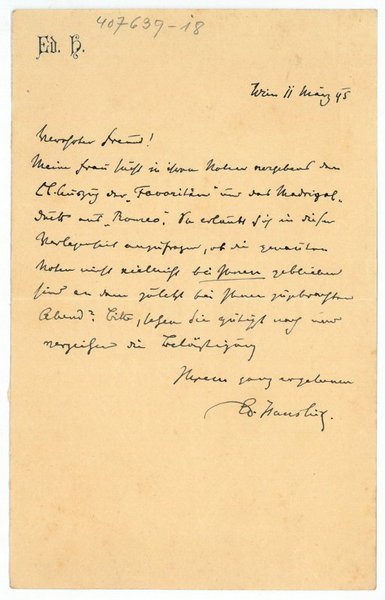 407639-18
Ed. H.
Wien 11 März 95
Verehrter Freund!
Meine Frau sucht in ihren Noten vergebens den
Cl. Auszug der „Favoritin" und das Madrigal-
duett aus „Romeo". Sie erlaubt sich in dieser
Verlegenheit anzufragen, ob die genannten
Noten nicht vielleicht bei Ihnen geblieben
sind an dem zuletzt bei Ihnen zugebrachten
Abend? Bitte, sehen Sie gütigst nach und
verzeihen die Belästigung
Ihrem ganz ergebenen
Ed Hanslick